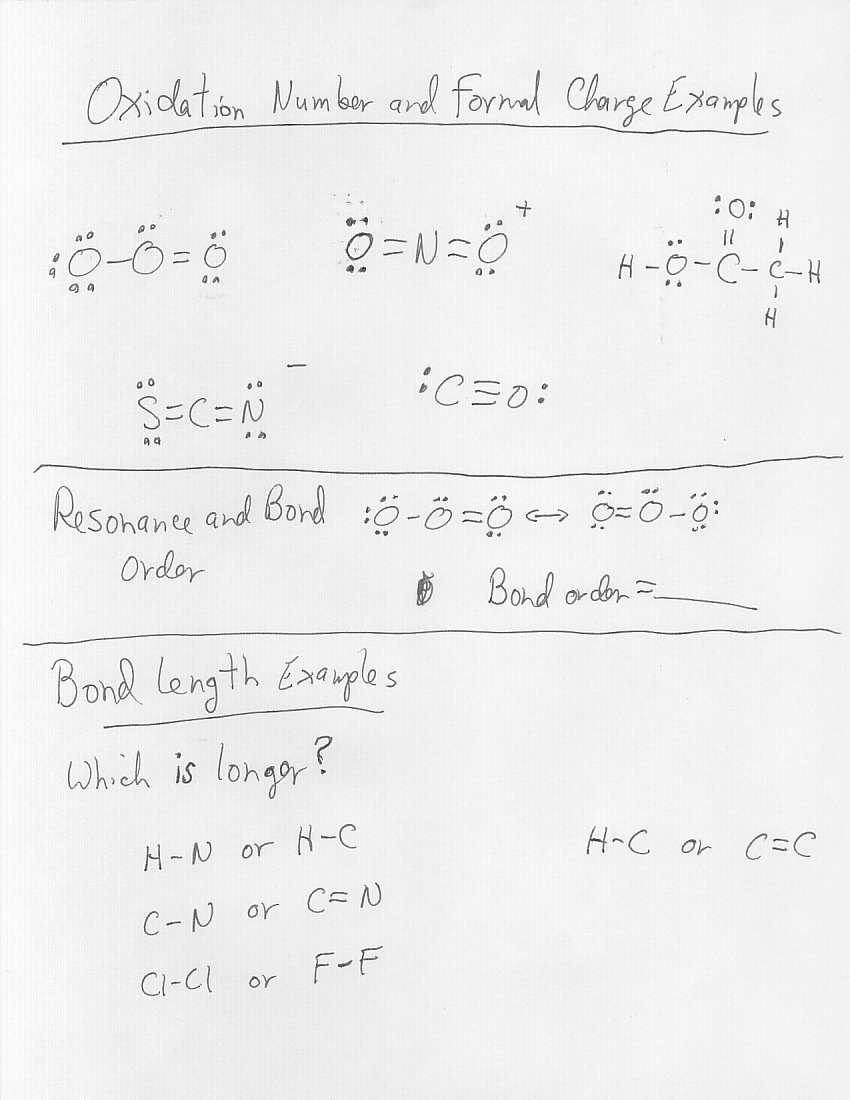 Oxidation Number and Formal Charge Examples
:Ö-Ö=Ö
Ö=N=Ö +
:O:
H
||
|
H-Ö-C-C-H
|
H
S=C=N -
:C≡O:
Resonance and Bond
Order
:Ö-Ö=Ö ↔ Ö=Ö-Ö:
Bond order = ______
Bond Length Examples
Which is longer?
H-N or H-C
H-C or C=C
C-N or C=N
Cl-Cl or F-F